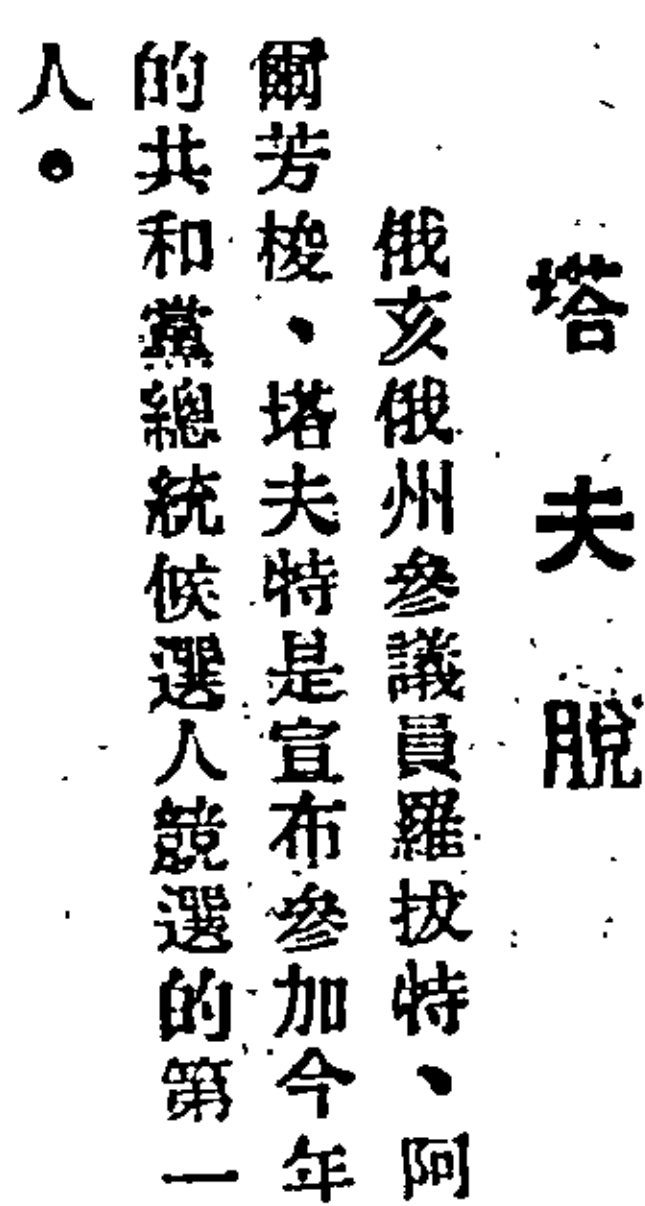 塔夫脫
俄亥俄州參議員羅拔特、阿
爾芳梭、塔夫特是宣布參加今年
的共和黨總統候選人競選的第一
人。